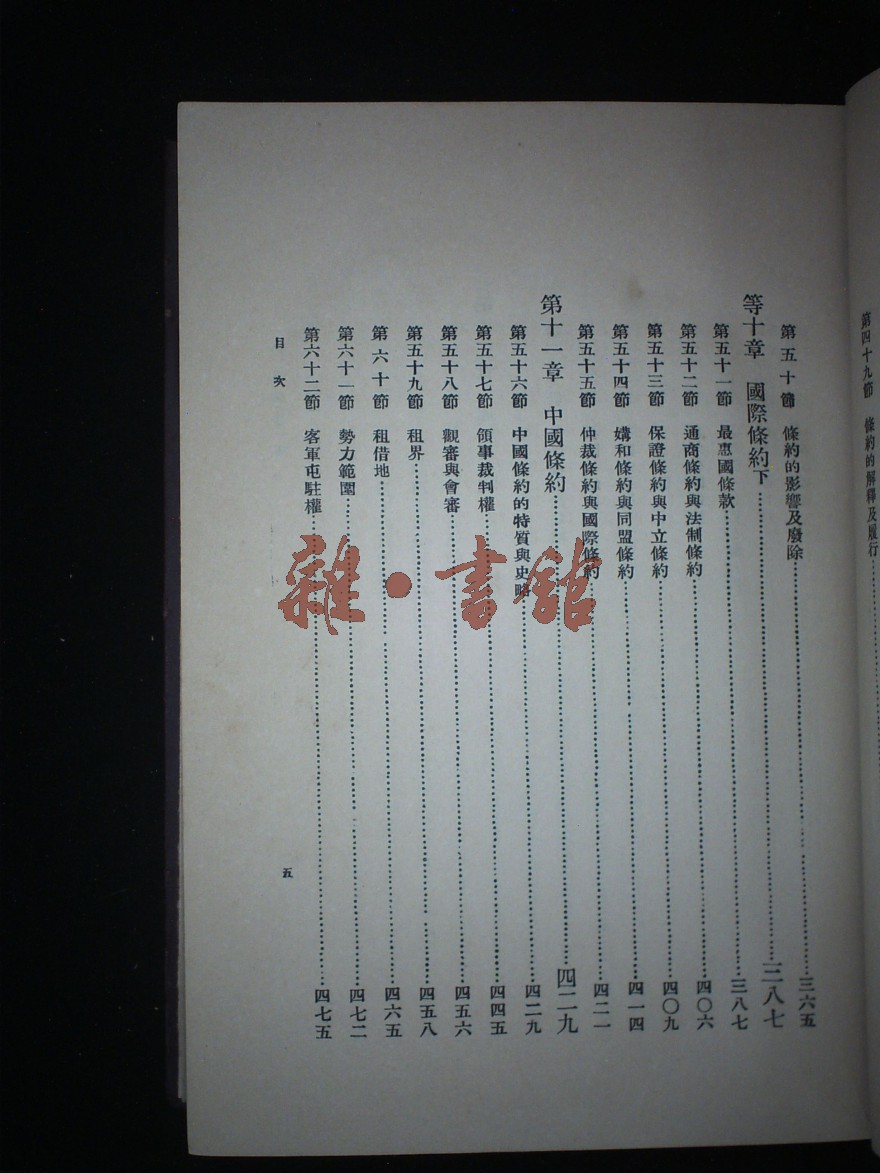 第四十九節 條約的解釋及履行
第五十節 條約的影響及廢除 三六五
等十章 國際條約下 三八七
第五十一節 最惠國條款 三八七
第五十二節 通商條約與法制條約 四〇六
第五十三節 保證條約與中立條約 四〇九
第五十四節 媾和條約與同盟條約 四一四
第五十五節 仲裁條約與國際條約 四二一
第十一章 中國條約 四二九
第五十六節 中國條約的特質與史略 四二九
第五十七節 領事裁判權 四四五
第五十八節 觀審與會審 四五六
第五十九節 租界 四五八
第六十節 租借地 四六五
第六十一節 勢力範圍 四七二
第六十二節 客軍屯駐權 四七五
目次
五
雜·書館